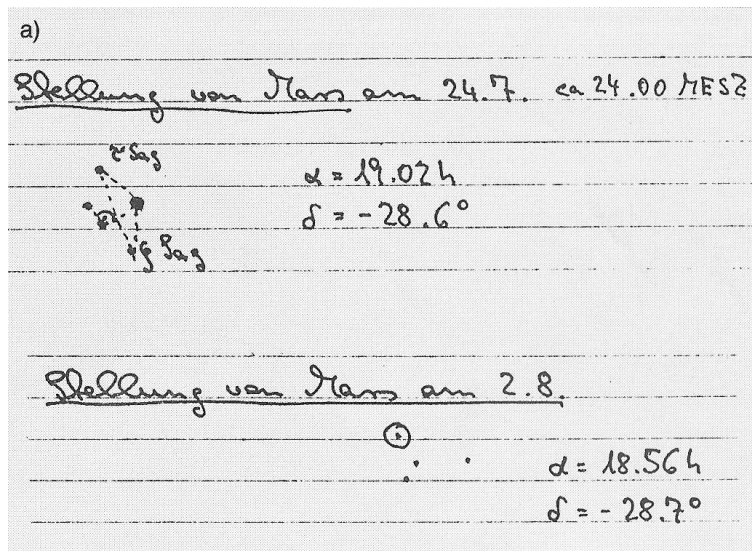 a)
Stellung von Mars am 24.7. ca 24.00 MESZ
τ Sag
α = 19.02h
δ = -28.6°
ζ Sag
Stellung von Mars am 2.8.
α = 18.56h
δ = -28.7°